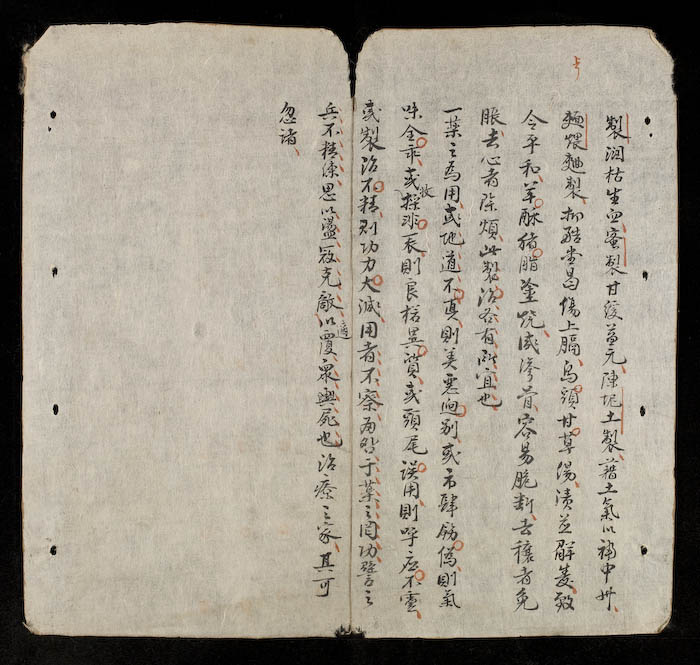 製润枯生血蜜製甘緩益元陳圯土製藉土氣以補中州
麵煨麯製抑酷 傷上膈烏頭甘草湯漬並解 致
令平和羊酥豬脂塗燒咸滲骨容易脆斷去穰者免
脹去心者除煩此製治各有所宜也
一藥之為用或地道不真則美惡迥別或市肆飭偽則氣
味全乖或採收非辰則良楛異質或頭尾誤用則呼应不靈
或製治不精則功力大減用者不察而咎于藥之罔功譬之
兵不精練思以盪寇克敵適以覆衆輿屍也治療之家其可
忽諸